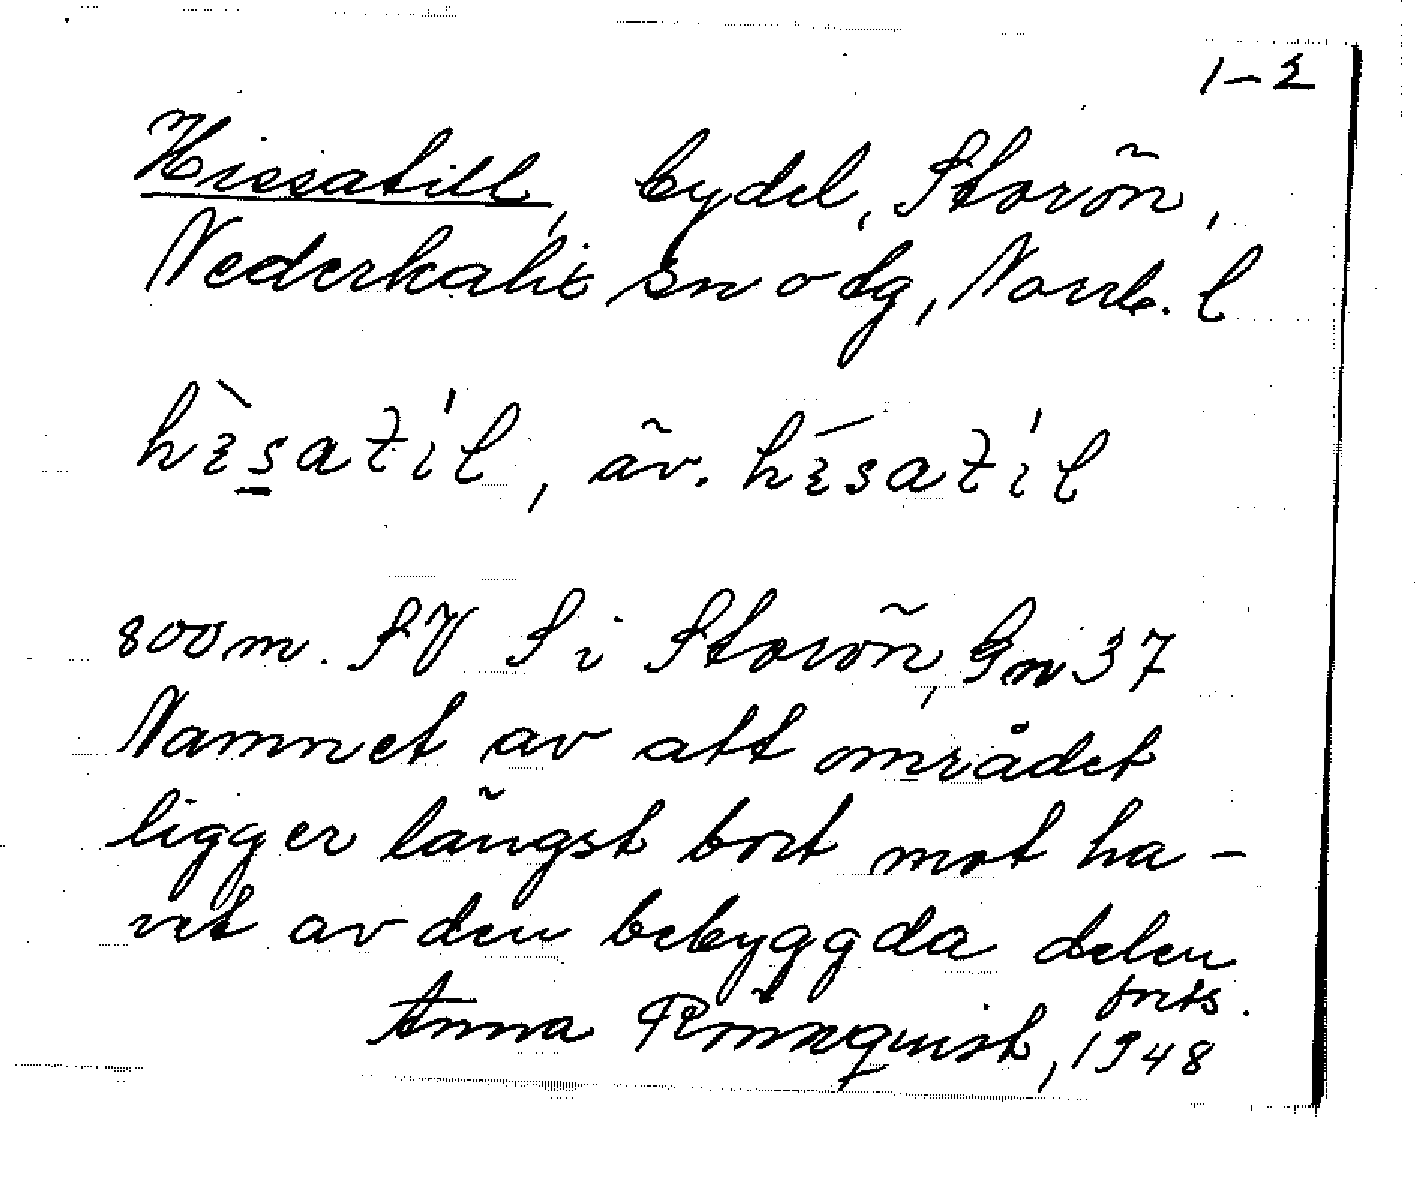 1–2
Hissatill, bydel, Storön,
Nederkalix sn o tg, Norrb. l
hɛ̀satíl, äv. hɛ́satíl
800 m. SV S i Storön, Gm 37
Namnet av att området
ligger längst bort mot ha-
vet av den bebyggda delen
forts.
Anna Rönnquist, 1948